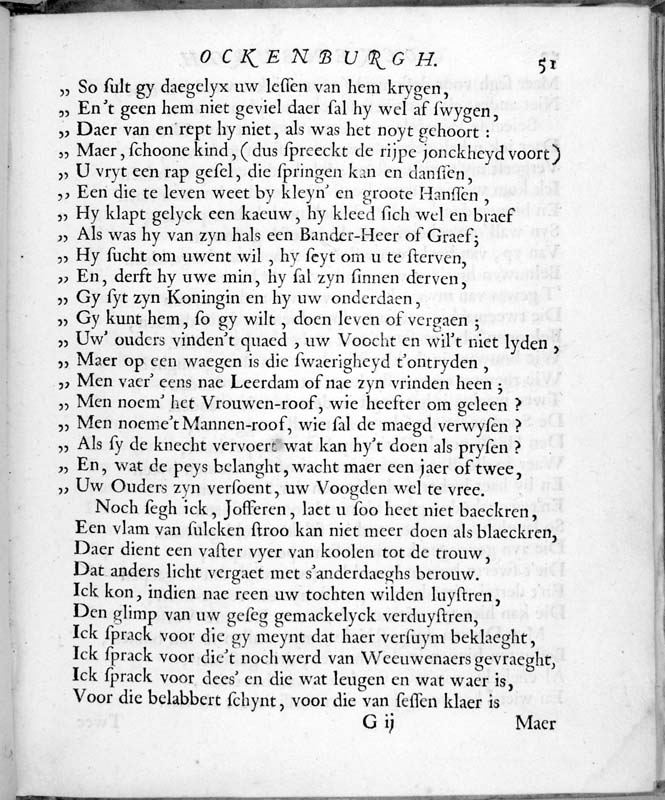 OCKENBURGH. 51
„ So ſult gy daegelyx uw leſſen van hem krygen,
„ En't geen hem niet geviel daer ſal hy wel af ſwygen,
„ Daer van en rept hy niet, als was het noyt gehoort :
„ Maer, ſchoone kind, (dus ſpreeckt de rijpe jonckheyd voort)
„ U vryt een rap geſel, die ſpringen kan en danſſen,
„ Een die te leven weet by kleyn' en groote Hanſſen,
„ Hy klapt gelyck een kaeuw, hy kleed ſich wel en braef
„ Als was hy van zyn hals een Bander-Heer of Graef;
„ Hy ſucht om uwent wil, hy ſeyt om u te ſterven,
„ En, derft hy uwe min, hy ſal zyn ſinnen derven,
„ Gy ſyt zyn Koningin en hy uw onderdaen,
„ Gy kunt hem, ſo gy wilt, doen leven of vergaen ;
„ Uw' ouders vinden't quaed, uw Voocht en wil't niet lyden,
„ Maer op een waegen is die ſwaerigheyd t'ontryden,
„ Men vaer' eens nae Leerdam of nae zyn vrinden heen ;
„ Men noem' het Vrouwen-roof, wie heefter om geleen ?
„ Men noeme't Mannen-roof, wie ſal de maegd verwyſen ?
„ Als ſy de knecht vervoert wat kan hy't doen als pryſen ?
„ En, wat de peys belanght, wacht maer een jaer of twee,
„ Uw Ouders zyn verſoent, uw Voogden wel te vree.
Noch ſegh ick, Jofferen, laet u ſoo heet niet baeckren,
Een vlam van ſulcken ſtroo kan niet meer doen als blaeckren,
Daer dient een vaſter vyer van koolen tot de trouw,
Dat anders licht vergaet met s'anderdaeghs berouw.
Ick kon, indien nae reen uw tochten wilden luyſtren,
Den glimp van uw geſeg gemackelyck verduyſtren,
Ick ſprack voor die gy meynt dat haer verſuym beklaeght,
Ick ſprack voor die't noch werd van Weeuwenaers gevraeght,
Ick ſprack voor dees' en die wat leugen en wat waer is,
Voor die belabbert ſchynt, voor die van ſeſſen klaer is
G ij Maer